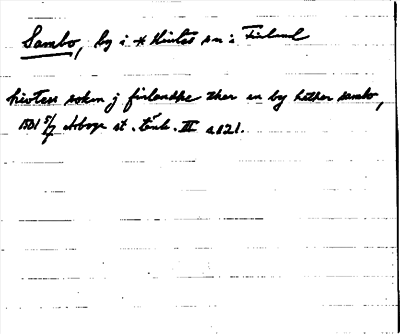 Sambo, by i * Hivtes sn i Finland
hivtess sokem j finlandhe ther en by hether sambo,
1501 5/7 Arboga st. tänk. III a 121.